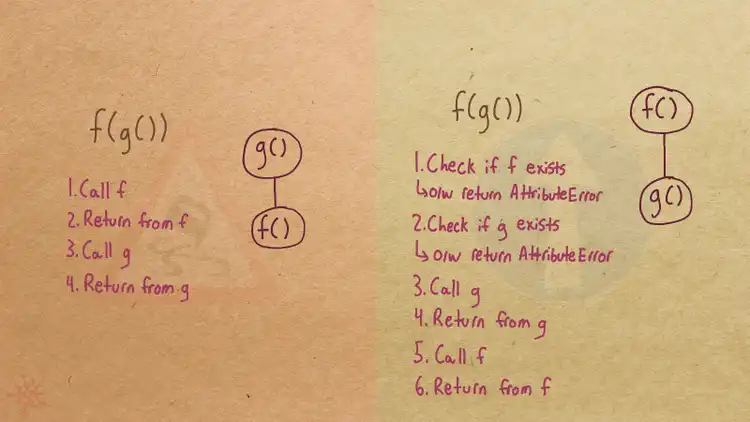 f(g())
g()
f()
1. Call f
2. Return from f
3. Call g
4. Return from g
f(g())
f()
g()
1. Check if f exists
↳o/w return AttributeError
2. Check if g exists
↳o/w return AttributeError
3. Call g
4. Return from g
5. Call f
6. Return from f